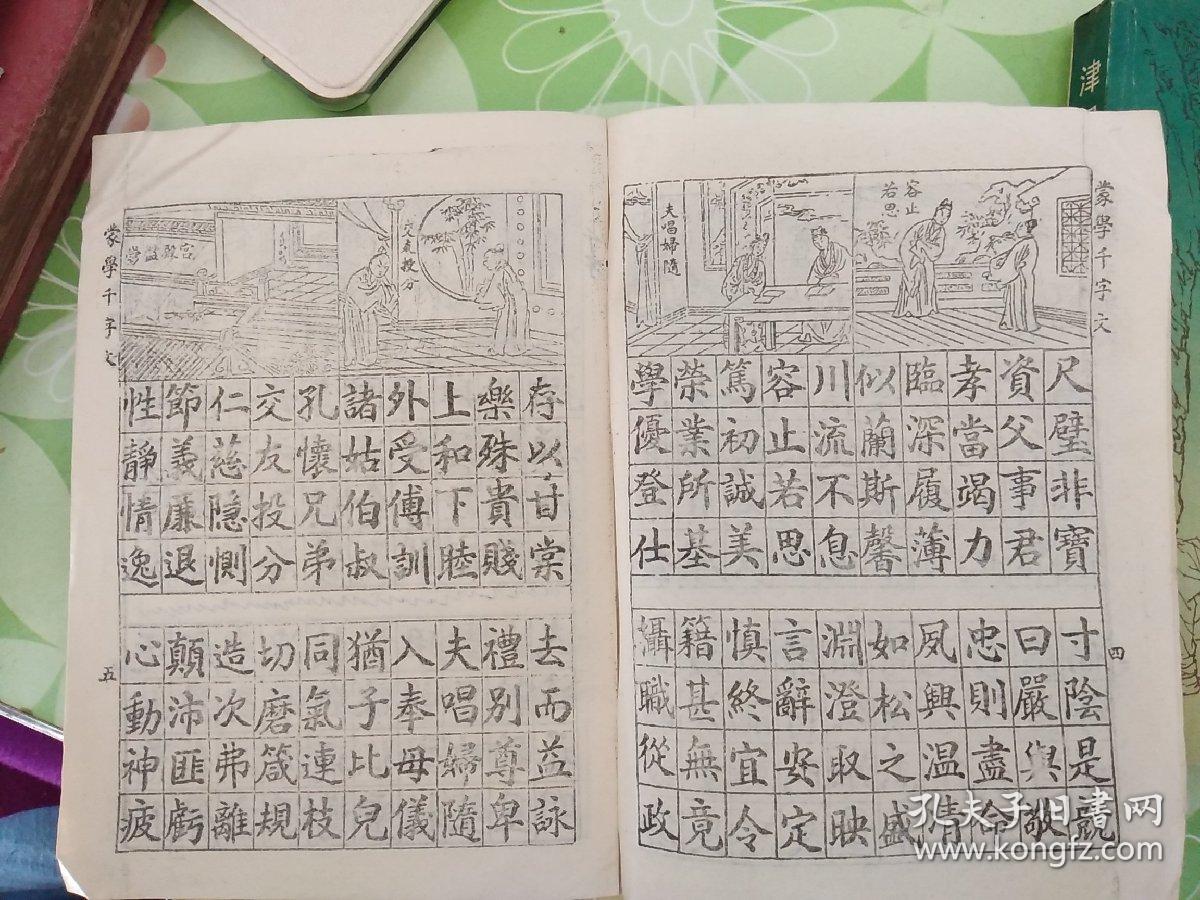 蒙學千字文
容止若思
夫唱婦隨
尺璧非寶寸陰是競
資父事君曰嚴與敬
孝當竭力忠則盡命
臨深履薄夙興温清
似蘭斯馨如松之盛
川流不息淵澄取映
容止若思言辭安定
篤初誠美慎終宜令
榮業所基籍甚無竟
學優登仕攝職從政
四
交友投分
宮殿盤
存以甘棠去而益詠
樂殊貴賤禮別尊卑
上和下睦夫唱婦隨
外受傅訓入奉母儀
諸姑伯叔猶子比兒
孔懷兄弟同氣連枝
交友投分切磨箴規
仁慈隐惻造次弗離
節義廉退顛沛匪虧
性靜情逸心動神疲
蒙學千字文
五
津
孔夫子旧書网
www.kongfz.com